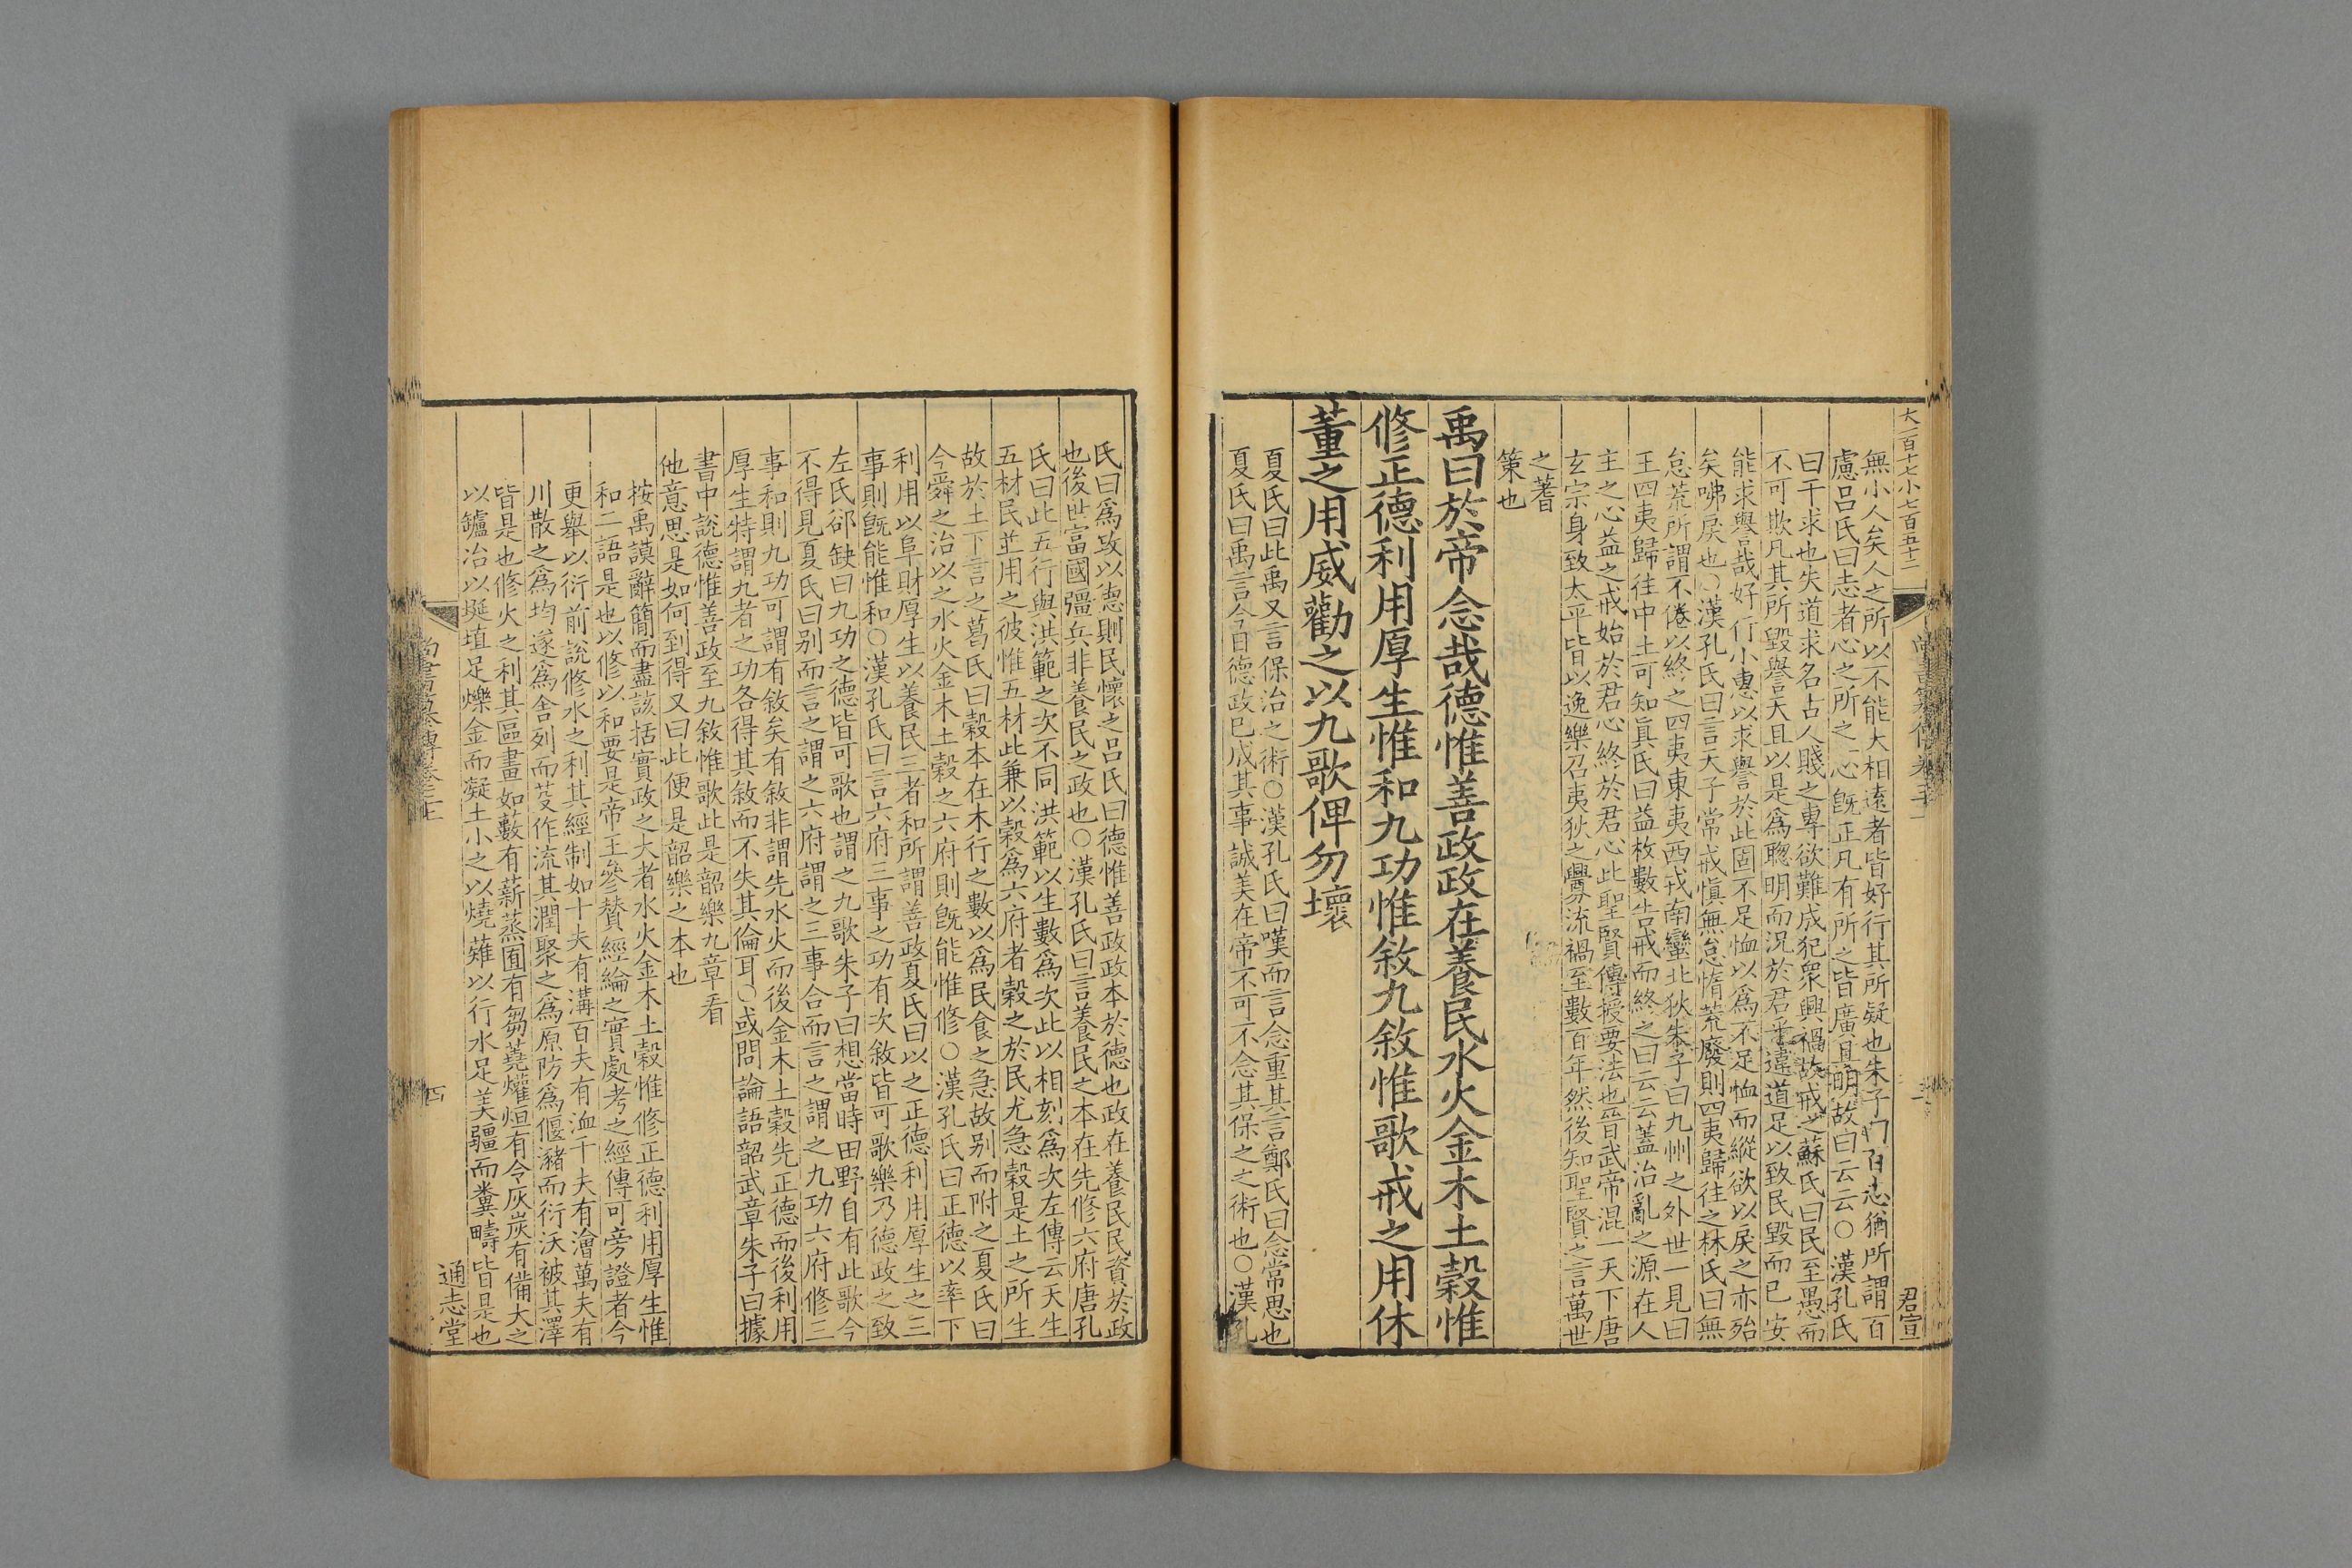 大一百十七小七百五十二
君宣
無小人矣人之所以不能大相遠者皆好行其所疑也朱子門百志猶所謂百
慮呂氏曰志者心之所之心旣正凡有所之皆廣且明故曰云云○漢孔氏
曰干求也失道求名古人賤之專欲難成犯衆興禍故戒之蘇氏曰民至愚而
不可欺凡其所毀譽天且以是爲聰明而況於君乎違道足以致民毀而已安
能求譽哉好行小惠以求譽於此固不足恤以爲不足恤而縱欲以戾之亦殆
矣咈戾也○漢孔氏曰言天子常戒愼無怠惰荒廢則四夷歸往之林氏曰無
怠荒所謂不倦以終之四夷東夷西戎南蠻北狄朱子曰九州之外世一見曰
王四夷歸往中土可知眞氏曰益枚數告戒而終之曰云云蓋治亂之源在人
主之心益之戒始於君心終於君心此聖賢傳授要法也晉武帝混一天下唐
玄宗身致太平皆以逸樂召夷狄之釁流禍至數百年然後知聖賢之言萬世
之蓍
策也
禹曰於帝念哉德惟善政政在養民水火金木土穀惟
修正德利用厚生惟和九功惟敘九敘惟歌戒之用休
董之用威勸之以九歌俾勿壞
夏氏曰此禹又言保治之術○漢孔氏曰嘆而言念重其言鄭氏曰念常思也
夏氏曰禹言今日德政已成其事誠美在帝不可不念其保之之術也○漢孔
氏曰爲政以德則民懷之呂氏曰德惟善政政本於德也政在養民民資於政
也後世富國彊兵非養民之政也○漢孔氏曰言養民之本在先修六府唐孔
氏曰此五行與洪範之次不同洪範以生數爲次此以相刻爲次左傳云天生
五材民並用之彼惟五材此兼以穀爲六府者穀之於民尤急穀是土之所生
故於土下言之葛氏曰穀本在木行之數以爲民食之急故别而附之夏氏曰
今舜之治以之水火金木土穀之六府則旣能惟修○漢孔氏曰正德以率下
利用以阜財厚生以養民三者和所謂善政夏氏曰以之正德利用厚生之三
事則旣能惟和○漢孔氏曰言六府三事之功有次敘皆可歌樂乃德政之致
左氏郤缺曰九功之德皆可歌也謂之九歌朱子曰想當時田野自有此歌今
不得見夏氏曰别而言之謂之六府謂之三事合而言之謂之九功六府修三
事和則九功可謂有敘矣有敘非謂先水火而後金木土穀先正德而後利用
厚生特謂九者之功各得其敘而不失其倫耳○或問論語韶武章朱子曰據
書中說德惟善政至九敘惟歌此是韶樂九章看
他意思是如何到得又曰此便是韶樂之本也
按禹謨辭簡而盡該括實政之大者水火金木土穀惟修正德利用厚生惟
和二語是也以修以和要是帝王參贊經綸之實處考之經傳可旁證者今
更舉以衍前說修水之利其經制如十夫有溝百夫有洫千夫有澮萬夫有
川散之爲均遂爲舍列而芟作流其潤聚之爲原防爲偃瀦而衍沃被其澤
皆是也修火之利其區畫如藪有薪蒸囿有芻蕘爟烜有令灰炭有備大之
以鑪冶以埏埴足爍金而凝土小之以燒薙以行水足美疆而糞疇皆是也
通志堂